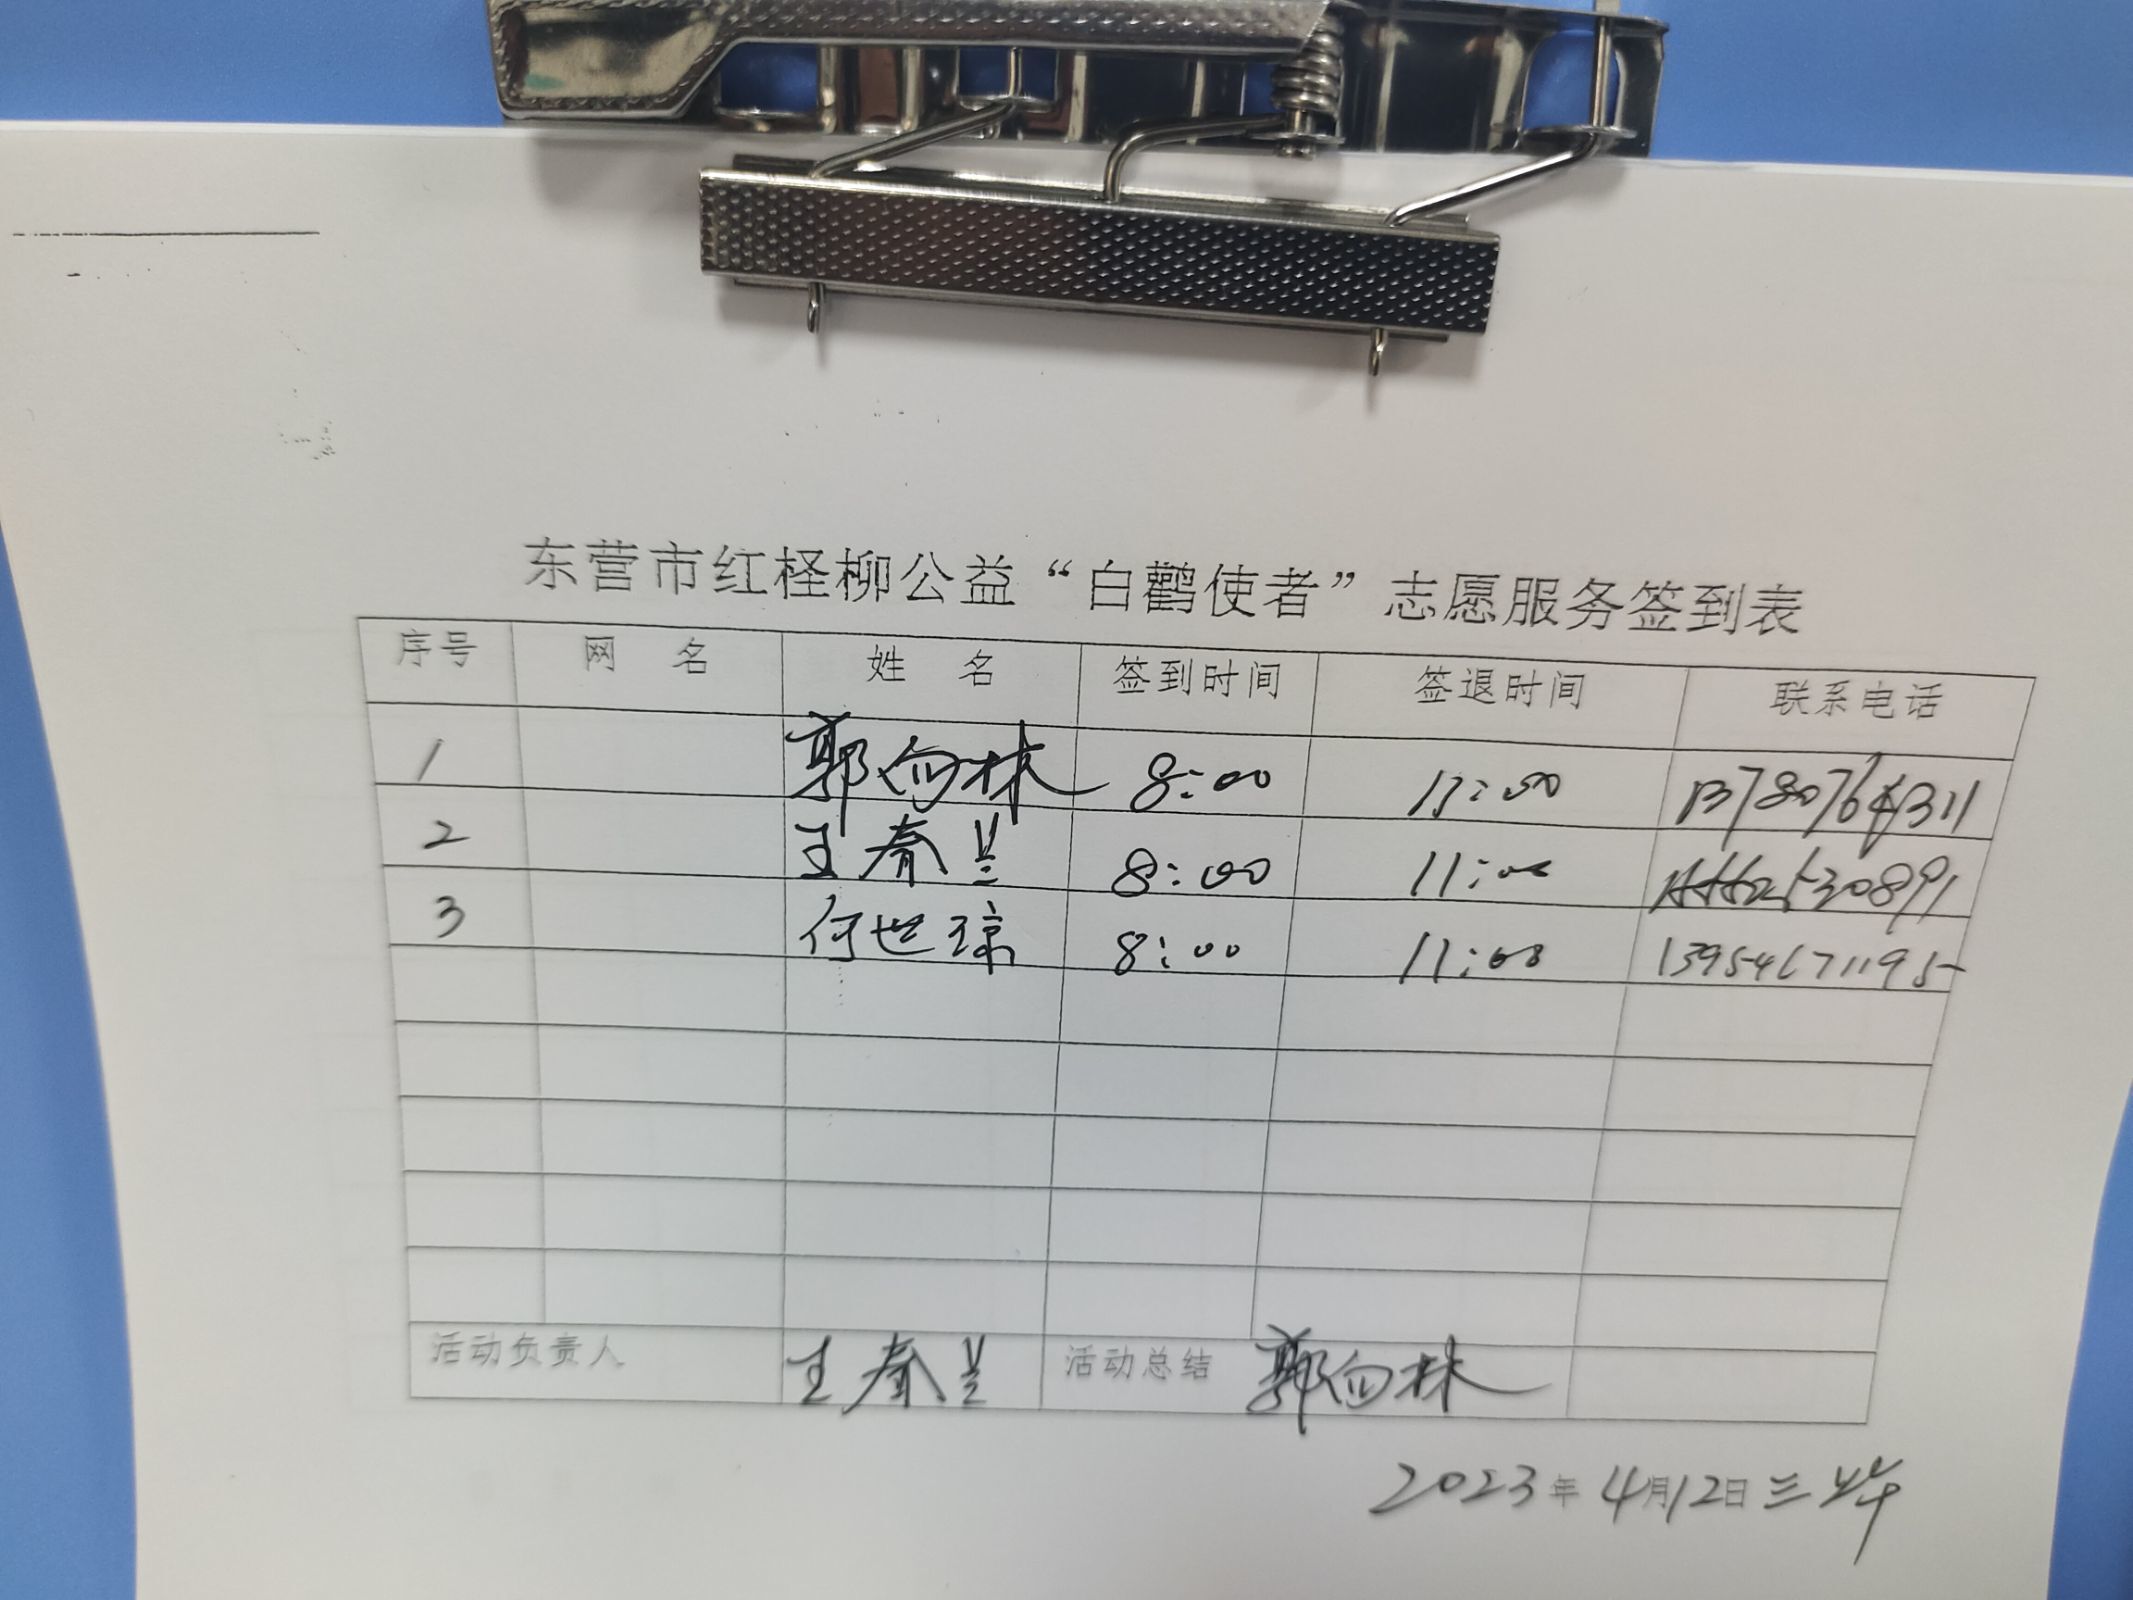 东营市红柽柳公益“白鹳使者”志愿服务签到表
序号 网 名 姓 名 签到时间 签退时间 联系电话
1 郭向林 8:00 11:00
2 王春兰 8:00 11:00
3 何世琼 8:00 11:00 13954671195
活动负责人 王春兰 活动总结 郭向林
2023年4月12日三